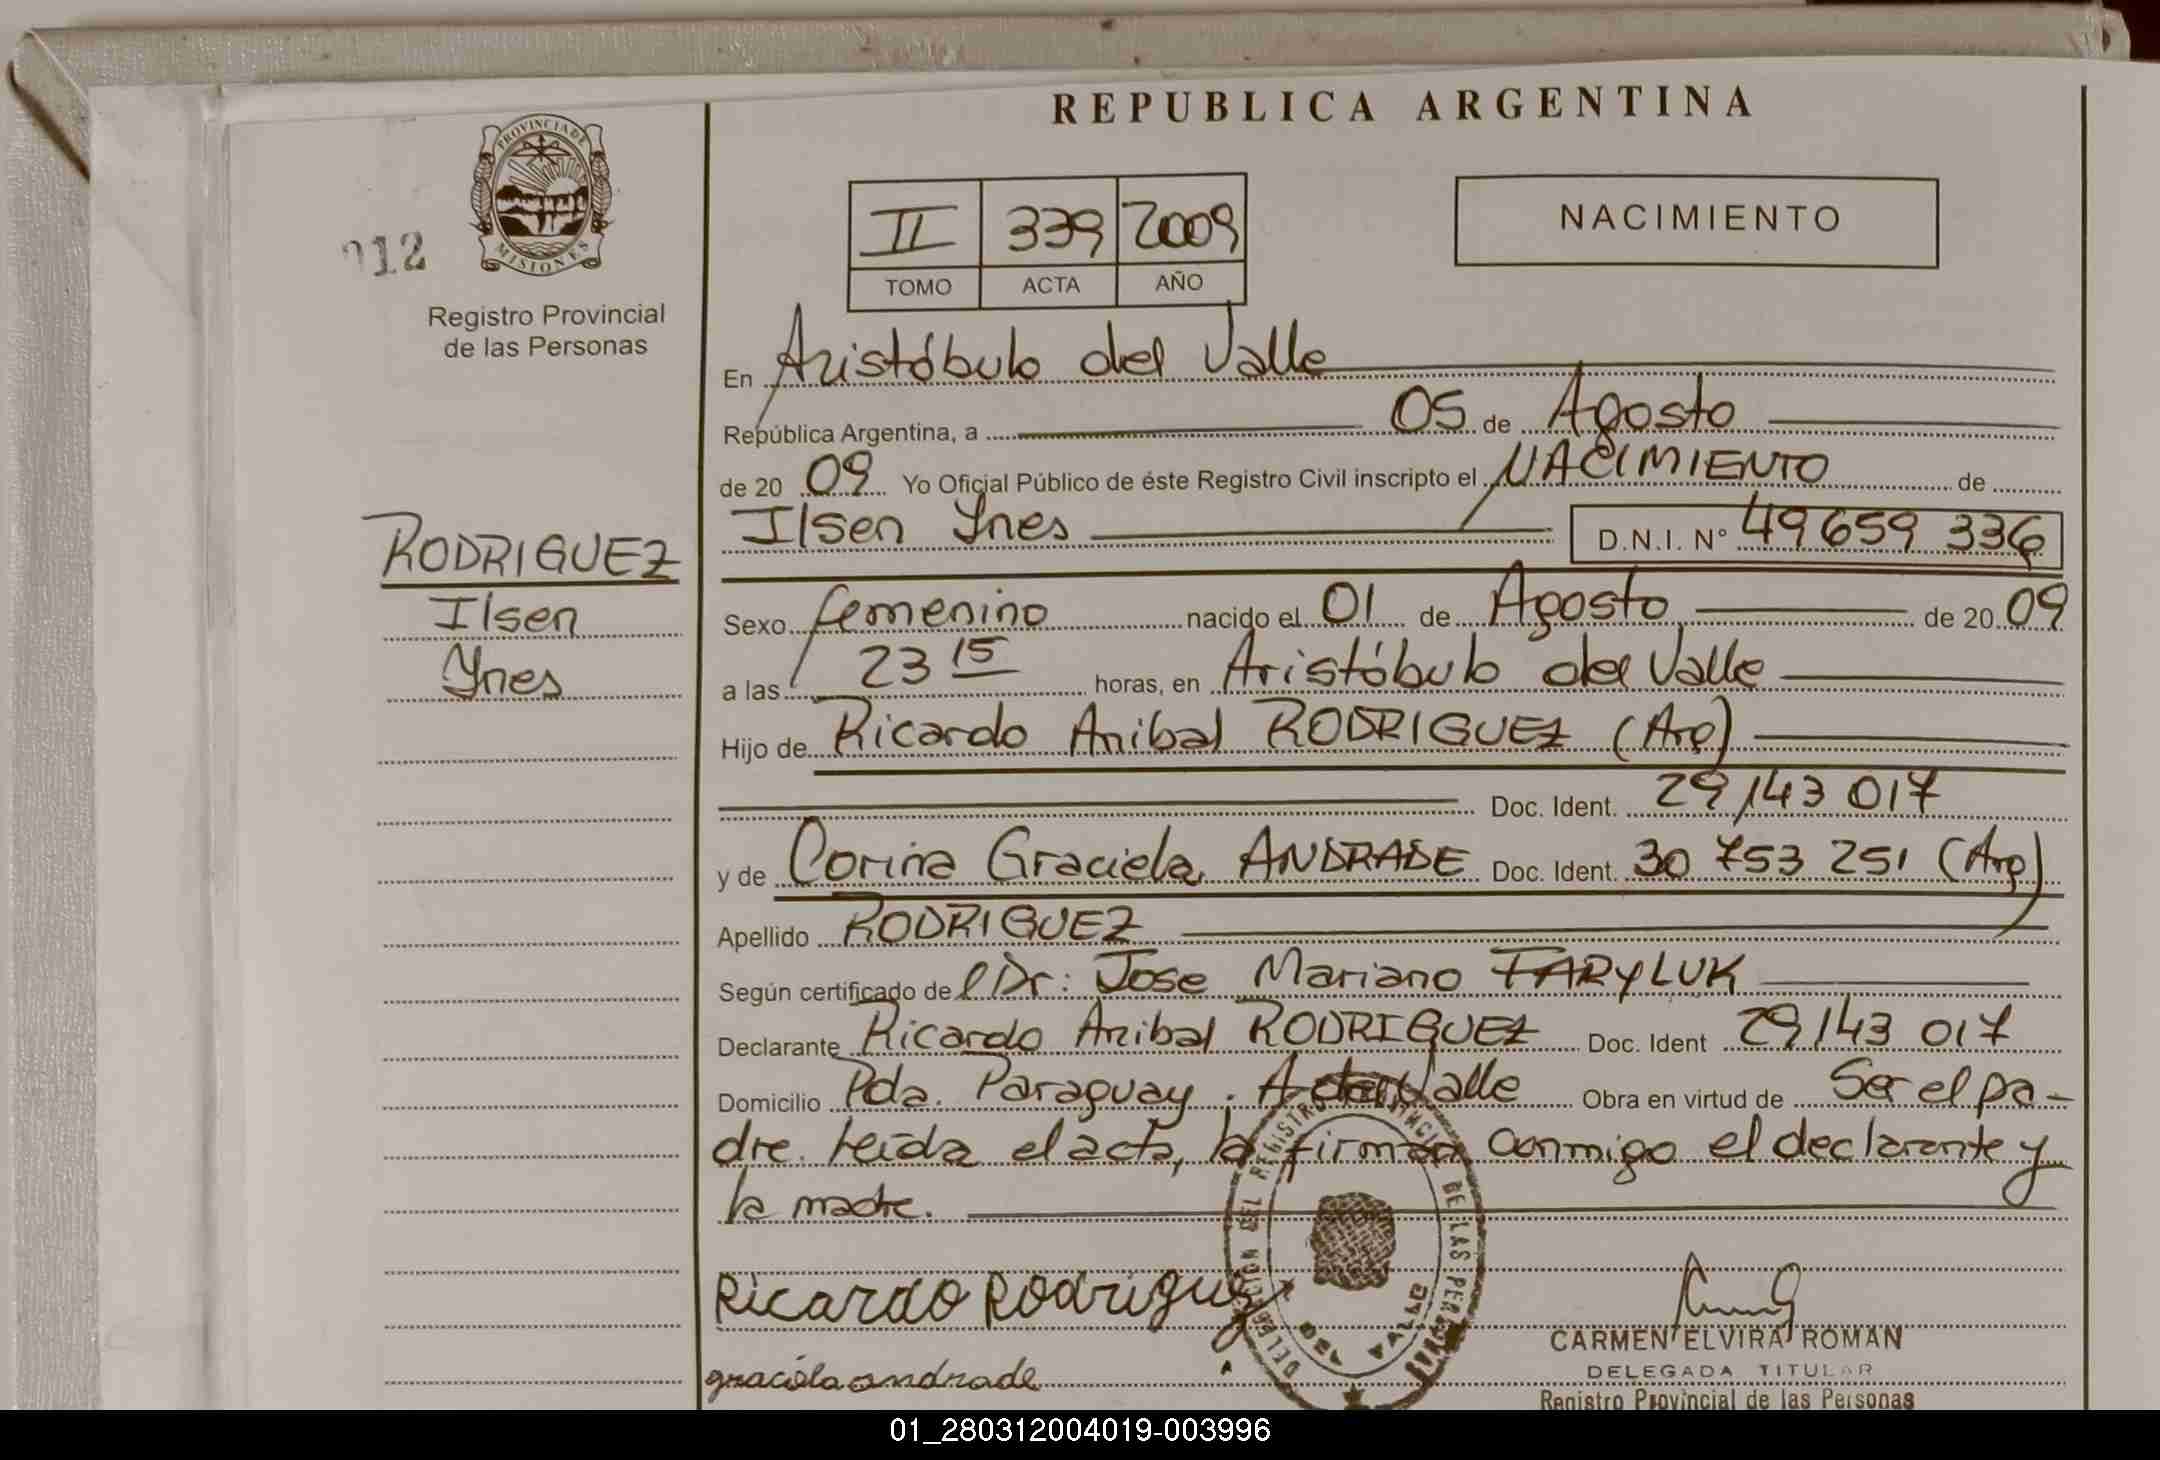 REPUBLICA ARGENTINA
PROVINCIA DE
MISIONES
012
Registro Provincial
de las Personas
II 339 2009
TOMO ACTA AÑO
NACIMIENTO
En Aristóbulo del Valle
República Argentina, a 05 de Agosto
de 20 09 Yo Oficial Público de éste Registro Civil inscripto el NACIMIENTO de
Ilsen Ynes D.N.I. N° 49 659 336
RODRIGUEZ
Ilsen
Ynes
Sexo femenino nacido el 01 de Agosto de 20 09
a las 23 15 horas, en Aristóbulo del Valle
Hijo de Ricardo Anibal RODRIGUEZ (Arg)
Doc. Ident. 29 143 017
y de Corina Graciela ANDRADE Doc. Ident. 30 753 251 (Arg)
Apellido RODRIGUEZ
Según certificado de l Dr: Jose Mariano FARYLUK
Declarante Ricardo Anibal RODRIGUEZ Doc. Ident 29 143 017
Domicilio Pda. Paraguay . A del Valle Obra en virtud de Ser el pa-
dre. Leída el acta, la firman conmigo el declarante y
la madre.
Ricardo Rodriguez
graciela andrade
DELEGACION DEL REGISTRO DE LAS PER
DEL VALLE
CARMEN ELVIRA ROMAN
DELEGADA TITULAR
Registro Provincial de las Personas
01_280312004019-003996